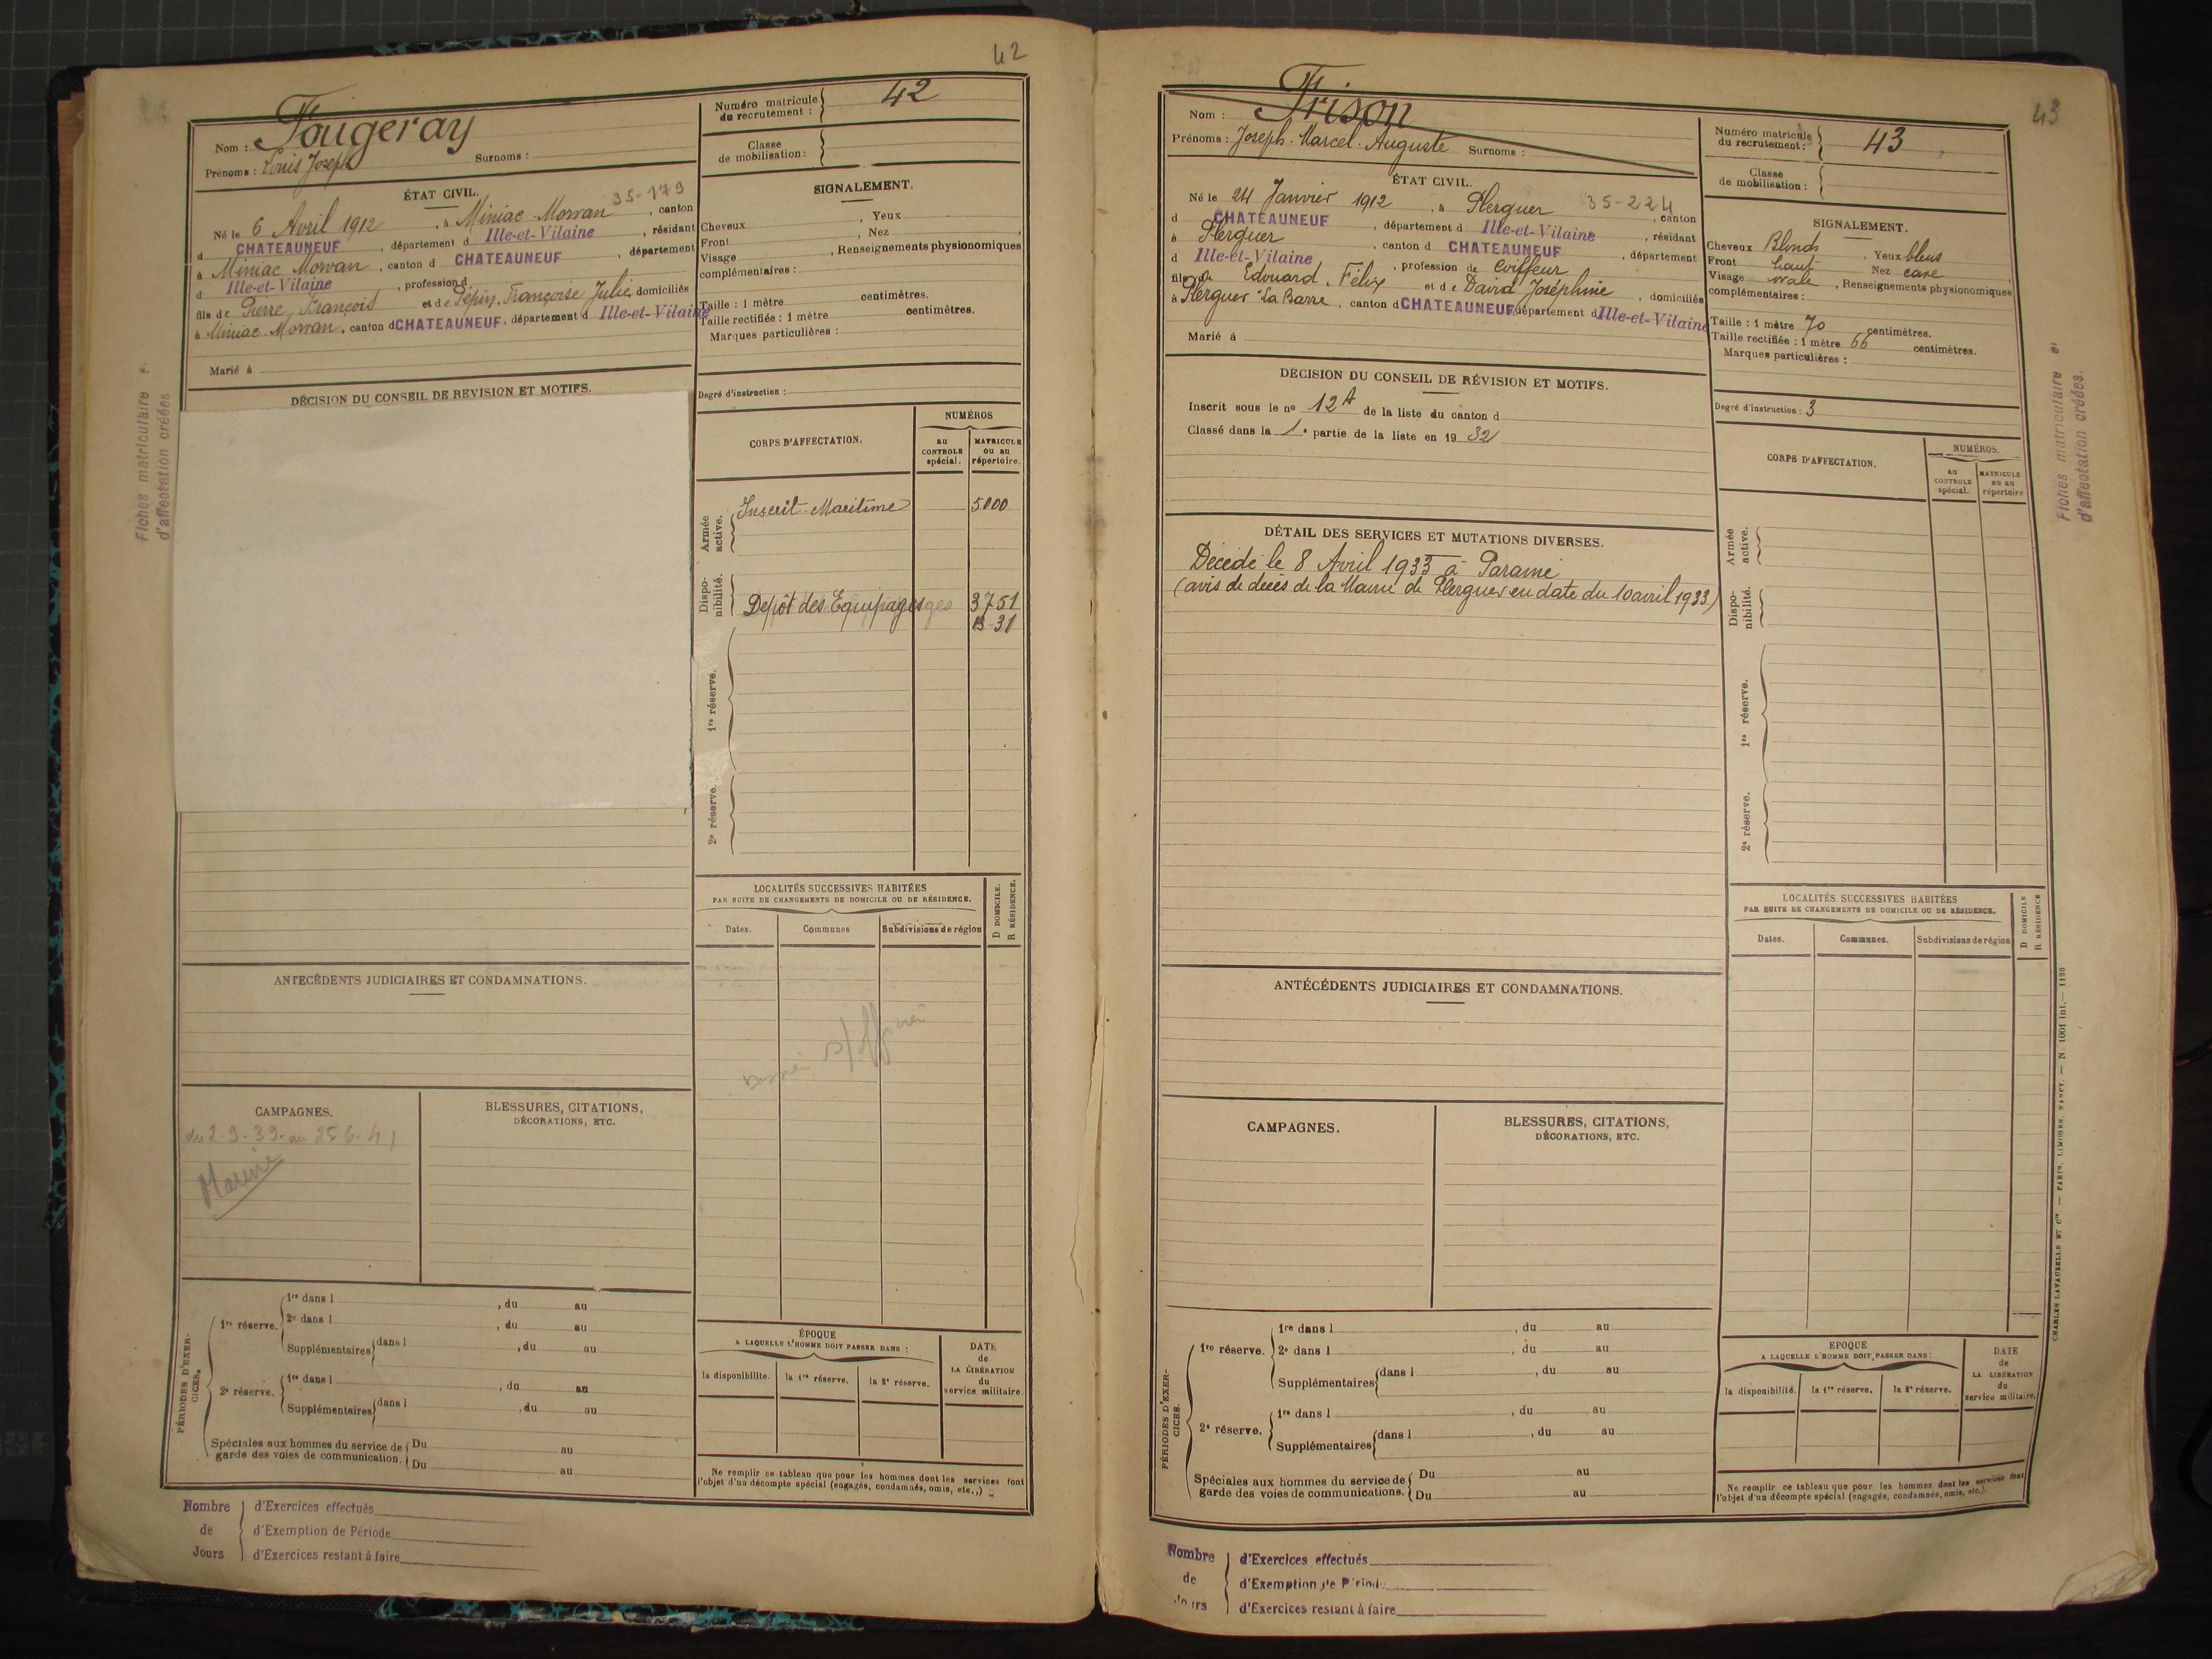 42
Nom : Fougeray
Prénoms : Louis Joseph Surnoms :
Numéro matricule du recrutement : 42
Classe de mobilisation :
ÉTAT CIVIL.
35-179
Né le 6 Avril 1912, à Miniac-Morvan, canton
d CHATEAUNEUF, département d Ille-et-Vilaine, résidant
à Miniac Morvan, canton d CHATEAUNEUF, département
d Ille-et-Vilaine, profession d
fils de Pierre, François et de Pépin, Françoise Julie, domiciliés
à Miniac-Morvan, canton d CHATEAUNEUF, département d Ille-et-Vilaine
Marié à
SIGNALEMENT.
Cheveux , Yeux
Front , Nez ,
Visage , Renseignements physionomiques
complémentaires :
Taille : 1 mètre centimètres.
Taille rectifiée : 1 mètre centimètres.
Marques particulières :
Degré d'instruction :
DÉCISION DU CONSEIL DE REVISION ET MOTIFS.
Fiches matriculaire et
d'affectation créées
CORPS D'AFFECTATION.
NUMÉROS
AU CONTROLE spécial.
MATRICULE ou au répertoire.
Armée active.
Inscrit Maritime 5000
Dispo-nibilité.
Dépôt des Equipages 3751
B-31
1re réserve.
2e réserve.
LOCALITÉS SUCCESSIVES HABITÉES
PAR SUITE DE CHANGEMENTS DE DOMICILE OU DE RÉSIDENCE.
D DOMICILE.
R RÉSIDENCE.
Dates. Communes Subdivisions de région
ANTÉCÉDENTS JUDICIAIRES ET CONDAMNATIONS.
CAMPAGNES.
du 2-9-39 au 25 6-41
Marine
BLESSURES, CITATIONS,
DÉCORATIONS, ETC.
PÉRIODES D'EXER-CICES.
1re réserve.
1re dans l , du au
2e dans l , du au
Supplémentaires dans l , du au
2e réserve.
1re dans l , du au
Supplémentaires dans l , du au
Spéciales aux hommes du service de garde des voies de communication.
Du au
Du au
ÉPOQUE
A LAQUELLE L'HOMME DOIT PASSER DANS :
la disponibilité. la 1re réserve. la 2e réserve.
DATE de LA LIBÉRATION du service militaire.
Ne remplir ce tableau que pour les hommes dont les services font
l'objet d'un décompte spécial (engagés, condamnés, omis, etc.,)
Nombre de Jours
d'Exercices effectués
d'Exemption de Période
d'Exercices restant à faire
43
Nom : Frison
Prénoms : Joseph. Marcel. Auguste Surnoms :
Numéro matricule du recrutement : 43
Classe de mobilisation :
ÉTAT CIVIL.
35-224
Né le 24 Janvier 1912, à Plerguer, canton
d CHATEAUNEUF, département d Ille-et-Vilaine, résidant
à Plerguer, canton d CHATEAUNEUF, département
d Ille-et-Vilaine, profession de Coiffeur
fils de Edouard, Félix et de David Joséphine, domiciliés
à Plerguer "La Barre, canton d CHATEAUNEUF, département d Ille-et-Vilaine
Marié à
SIGNALEMENT.
Cheveux Blonds, Yeux bleus
Front haut Nez cave
Visage ovale, Renseignements physionomiques
complémentaires :
Taille : 1 mètre 70 centimètres.
Taille rectifiée : 1 mètre 66 centimètres.
Marques particulières :
Degré d'instruction : 3
DÉCISION DU CONSEIL DE RÉVISION ET MOTIFS.
Inscrit sous le no 12A de la liste du canton d
Classé dans la 1e partie de la liste en 1932
DÉTAIL DES SERVICES ET MUTATIONS DIVERSES.
Décédé le 8 Avril 1933 à Paramé
(avis de décès de la Mairie de Plerguer en date du 10 avril 1933)
Fiches matriculaire et
d'affectation créées.
CORPS D'AFFECTATION.
NUMÉROS.
AU CONTROLE spécial.
MATRICULE ou au répertoire
Armée active.
Dispo-nibilité.
1re réserve.
2e réserve.
LOCALITÉS SUCCESSIVES HABITÉES
PAR SUITE DE CHANGEMENTS DE DOMICILE OU DE RÉSIDENCE.
D DOMICILE
R RÉSIDENCE
Dates. Communes. Subdivisions de région
ANTÉCÉDENTS JUDICIAIRES ET CONDAMNATIONS.
CAMPAGNES.
BLESSURES, CITATIONS,
DÉCORATIONS, ETC.
PÉRIODES D'EXER-CICES.
1re réserve.
1re dans l , du au
2e dans l , du au
Supplémentaires dans l , du au
2e réserve.
1re dans l , du au
Supplémentaires dans l , du au
Spéciales aux hommes du service de garde des voies de communications.
Du au
Du au
EPOQUE
A LAQUELLE L'HOMME DOIT PASSER DANS :
la disponibilité. la 1re réserve. la 2e réserve.
DATE de LA LIBÉRATION du service militaire.
Ne remplir ce tableau que pour les hommes dont les services font
l'objet d'un décompte spécial (engagés, condamnés, omis, etc.).
CHARLES LAVAUZELLE ET Cie. — PARIS, LIMOGES, NANCY. — N. 1001 int. — 1126
Nombre de Jours
d'Exercices effectués
d'Exemption de Période
d'Exercices restant à faire